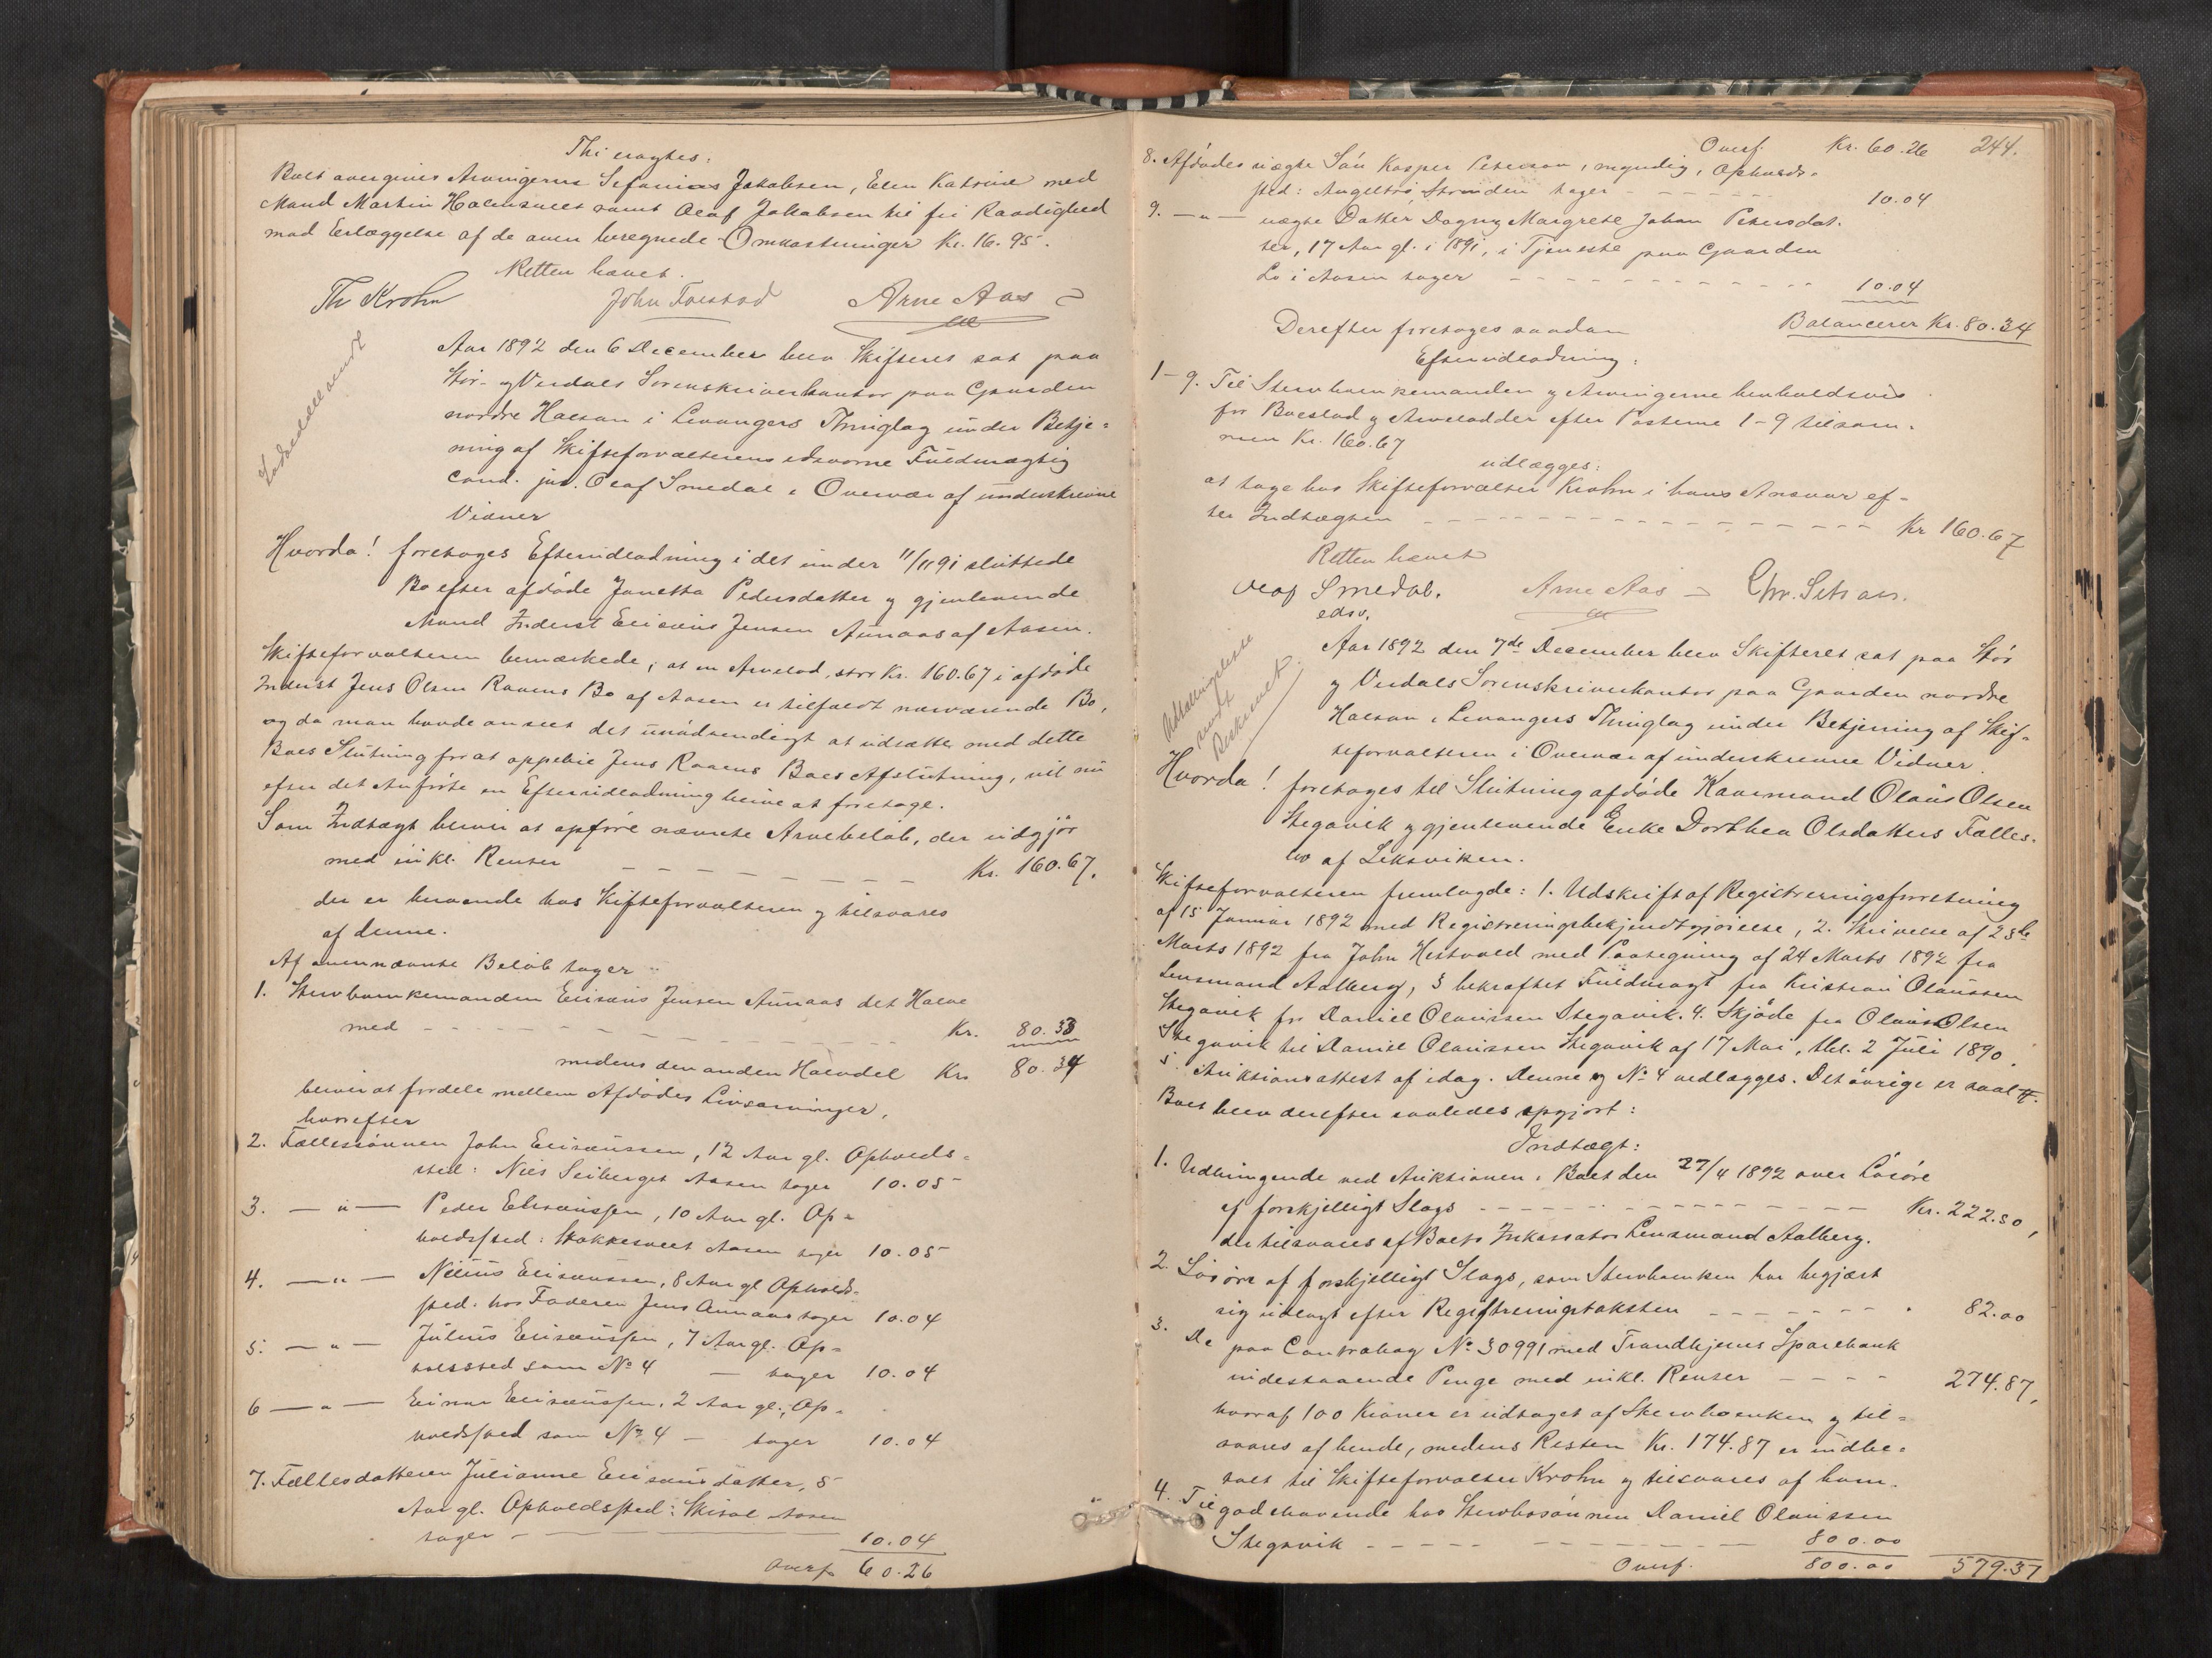 Thi eragtes:
Boet overgives Arvingerne Sefanias Jakobsen, Elen Katrine med
Mand Martin Holmsveet samt Olaf Jakobsen til fri Raadighed
mod Erlæggelse af de oven beregnede Omkostninger Kr. 16.95.
Retten hævet.
Th Krohn John Forstad Arne Aas
Aar 1892 den 6 December blev Skifteret sat paa
Stør- og Verdals Sorenskriverkontor paa Gaarden
nordre Halsan i Levangers Thinglag under Betje-
ning af Skifteforvalterens edsvorne Fuldmægtig
cand. jur. Olaf Smedal i Overvær af underskrevne
Vidner
Hvorda! foretoges Efterudlodning i det under 11/11 91 sluttede
Bo efter afdøde Janetta Pedersdatter og gjenlevende
Mand Inderst Elisæus Jensen Aunaas af Aasen.
Skifteforvalteren bemærkede, at en Arvelod, stor Kr. 160.67 i afdøde
Inderst Jens Olsen Ravens Bo af Aasen er tilfaldt nærværende Bo,
og da man havde anseet det unødvendigt at udsætte med dette
Boes Slutning for at oppebie Jens Raaens Boes Afslutning, vil nu
efter det Anførte en Efterudlodning blive at foretage.
Som Indtægt bliver at opføre nævnte Arvebeløb, der udgjør
med inkl. Renter Kr. 160.67.
der er beroende hos Skifteforvalteren og tilsvares
af denne.
Af ovennævnte Beløb tager
1. Stervboenkemanden Elisæus Jensen Aunaas det Halve
med Kr. 80.33
medens den anden Halvdel Kr. 80.34
bliver at fordele mellem Afdødes Livsarvinger,
hvorefter
2. Fællessønnen John Elisæussen, 12 Aar gl. Opholds-
sted: Nils Aasen tager 10.05
3. — " — Peder Elisæussen, 10 Aar gl. Op-
holdssted: Aasen tager 10.05
4. — " — Nilius Elisæussen, 8 Aar gl Opholds-
sted: hos Faderen Jens Aunaas tager 10.04
5. — " — Julius Elisæussen, 7 Aar gl. Op-
holdssted som No 4 — tager 10.04
6 — " — Einar Elisæussen, 2 Aar gl., Op-
holdssted som No 4 — tager 10.04
7. Fællesdatteren Julianne Elisæusdatter, 5
Aar gl. Opholdssted: Aasen
tager 10.04
Overf. 60.26
Overf. Kr. 60.26 244.
8. Afdødes uægte Søn Kasper Peterson, myndig, Opholds-
sted: Strinden tager 10.04
9. — " — uægte Datter Dagny Margrete Johan Petersdat-
ter, 17 Aar gl. i 1891, i Tjeneste paa Gaarden
Lo i Aasen tager 10.04
Balancerer Kr. 80.34
Derefter foretoges saadan
Efterudlodning:
1-9. Til Stervboenkemanden og Arvingerne henholdsvis
for Boeslod og Arvelodder efter Posterne 1-9 tilsam-
men Kr. 160.67
udlægges:
at tage hos Skifteforvalter Krohn i hans Ansvar ef-
ter Indtægten Kr 160.67
Retten hævet
Olaf Smedal. Arne Aas
edsv.
Aar 1892 den 7de December blev Skifteret sat paa Stør
og Verdals Sorenskriverkontor paa Gaarden nordre
Halsan i Levangers Thinglag under Betjening af Skif-
teforvalteren i Overvær af underskrevne Vidner
Hvorda! foretoges til Slutning afdøde Kaarmand Olaus Olsen
Stegavik og gjenlevende Enke Dorthea Olsdatters Fælles-
bo af Leksviken.
Skifteforvalteren fremlagde: 1. Udskrift af Registreringsforretning
af 15 Januar 1892 med Registreringsbekjendtgjørelse, 2. Skrivelse af 23de
Marts 1892 fra John Hestvold med Paategning af 24 Marts 1892 fra
Lensmand Aalberg, 3 bekræftet Fuldmagt fra Kristian Olaussen
Stegavik for Daniel Olaussen Stegavik. 4. Skjøde fra Olaus Olsen
Stegavik til Daniel Olaussen Stegavik af 17 Mai, thl. 2 Juli 1890.
5. Auktionsattest af idag. Denne og No 4 vedlægges. Det øvrige er
Boet blev derefter saaledes opgjort:
Indtægt:
1. Udbringende ved Auktionen i Boet den 27/4 1892 over Løsøre
af forskjelligt Slags Kr. 222.50,
der tilsvares af Boets Inkassator Lensmand Aalberg.
2. Løsøre af forskjelligt Slags, som Stervboenken har begjært
sig udlagt efter Registreringstaksten 82.00
3. De paa Contrabog No 30991 med Trondhjems Sparebank
indestaaende Penge med inkl. Renter 274.87,
hvoraf 100 Kroner er udtaget af Stervboenken og til-
svares af hende, medens Resten Kr. 174.87 er indbe-
talt til Skifteforvalter Krohn og tilsvares af ham.
4. Tilgodehavende hos Stervbosønnen Daniel Olaussen
Stegavik 800.00
Overf. 800.00 579.37